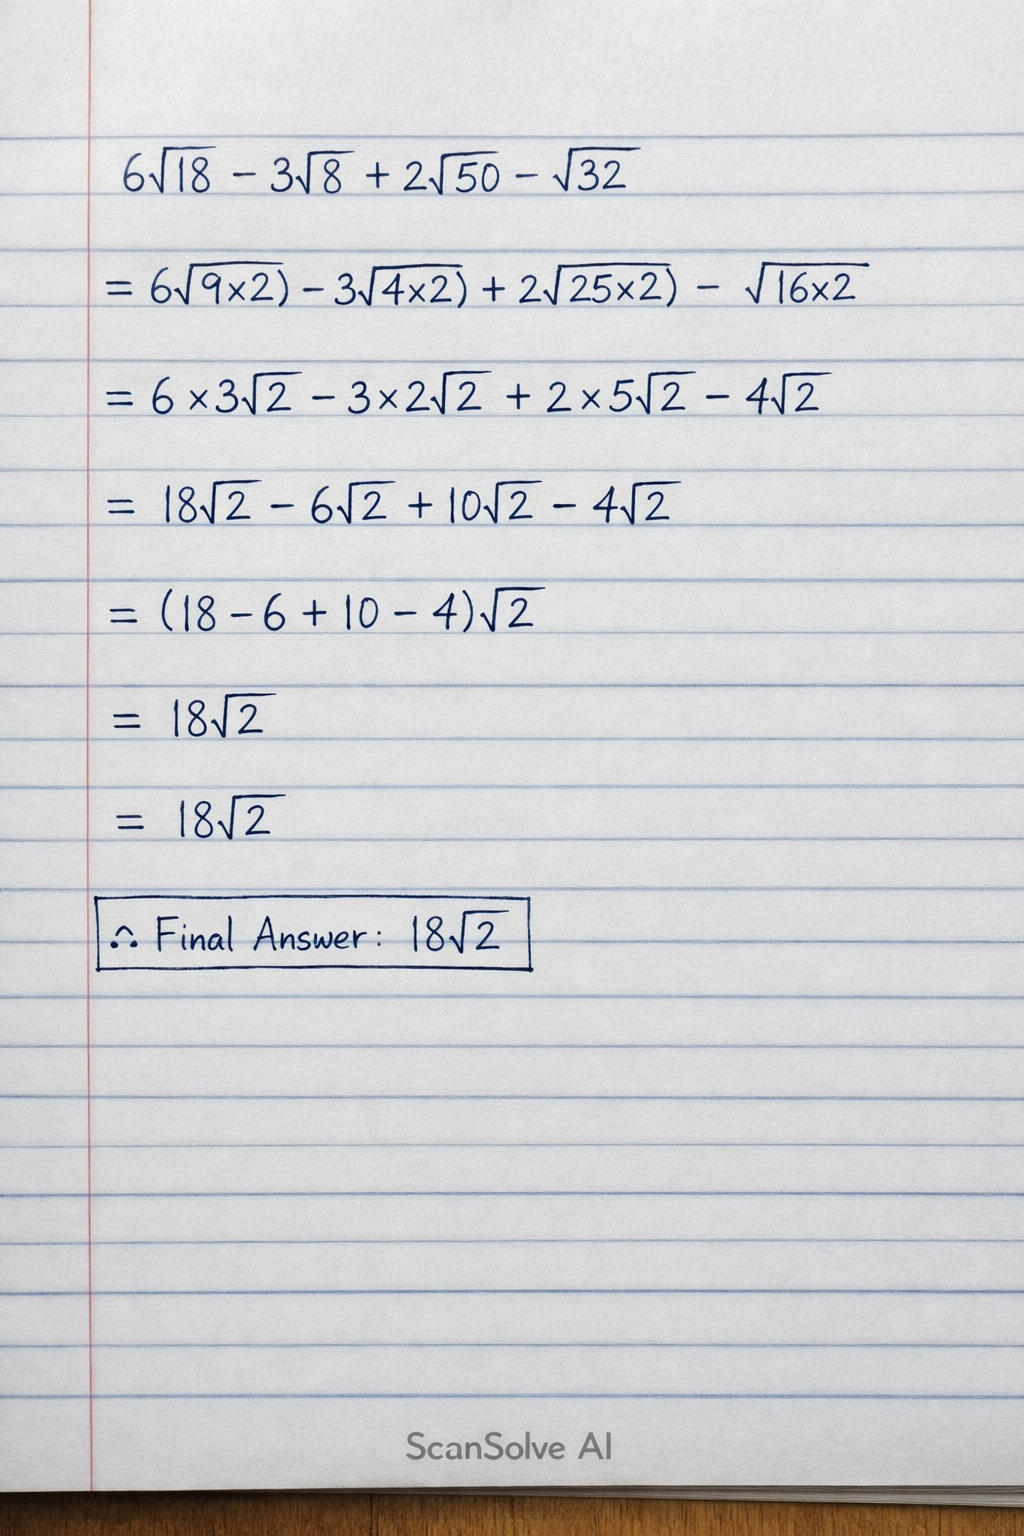 6√18 − 3√8 + 2√50 − √32
= 6√9×2) − 3√4×2) + 2√25×2) − √16×2
= 6 ×3√2 − 3×2√2 + 2×5√2 − 4√2
= 18√2 − 6√2 + 10√2 − 4√2
= (18 − 6 + 10 − 4)√2
= 18√2
= 18√2
∴ Final Answer: 18√2
ScanSolve AI